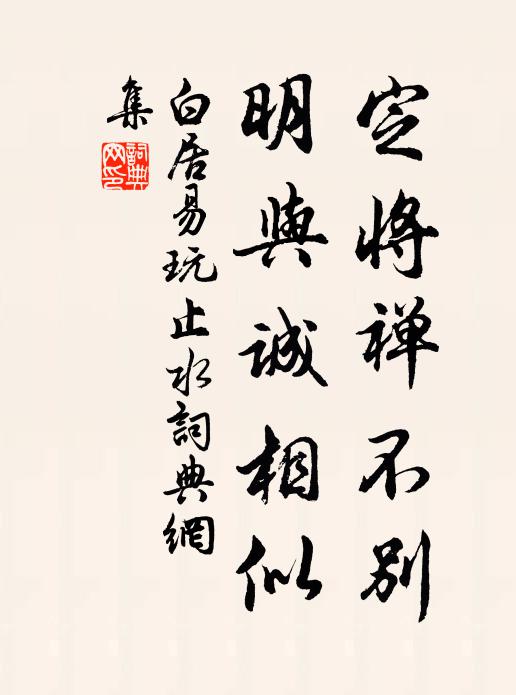 定将禅不别
明與誠相似
白居易玩止水詞典網
集
詞典網印